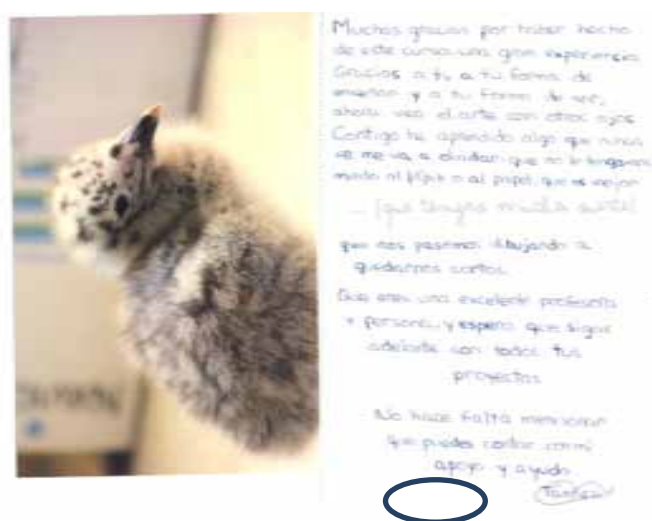 Muchas gracias por haber hecho
de este curso una gran experiencia
Gracias a ti, a tu forma de
enseñar y a tu forma de ser,
ahora veo el arte con otros ojos
Contigo he aprendido algo que nunca
se me va a olvidar, que no le tengamos
miedo al lápiz o al papel, que es mejor
... ¡que tengas mucha suerte!
que nos pasemos dibujando a
quedarnos cortos.
Que eres una excelente profesora
y persona, y espero que sigas
adelante con todos tus
proyectos
No hace falta mencionar
que puedes contar con mi
apoyo y ayuda